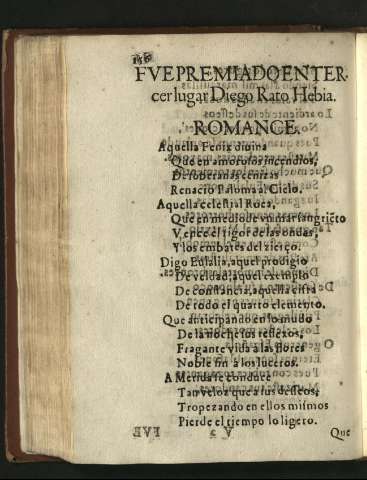 FVE PREMIADO EN TER-
cer lugar Diego Rato Hebia.
ROMANCE.
Aquella Fenix diuina
Que en amorosos incendios,
De sobera as cenizas
Renaciò Paloma al Cielo.
Aquella celestial Roca,
Que en medio de vn mar sangriẽto
Vence el rigor e las ondas,
Y los embates del zierço.
Digo Eulalia, aquel prodigio
De veldad, aquel exemplo
De constancia, aquella
De todo el quarto elemento.
Que anticipando en lo mudo
De la noche sus reflexos,
Fragante vida à las flores
Noble fin à los luceros.
A Merida se conduce
Tan veloz que a sus desseos,
Tropezando en ellos mismos
Pierde el tiempo lo ligero.
Que